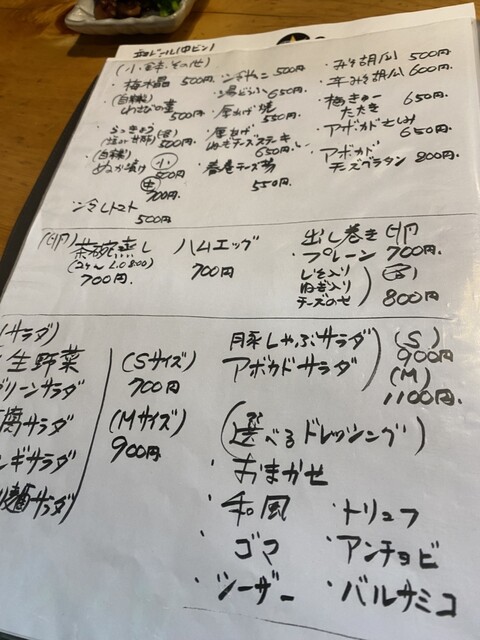 (小鉢その他)
・梅水晶 500円
(自家製)
わさびの茎 500円
らっきょう
500円
(自家製)
ぬか漬け (小) 500円
(中) 700円
・冷しトマト
500円
・冷やっこ 500円
・湯どうふ 650円
・厚揚げ焼
550円
・厚あげ
ねぎチーズステーキ
650円
・春巻チーズ揚
550円
・みそ胡瓜 500円
・辛みそ胡瓜 600円
・梅きゅー
たたき 650円
・アボカドさしみ
650円
・アボカド
チーズグラタン 800円
(卵)
茶碗蒸し
700円
ハムエッグ
700円
出し巻き卵
・プレーン 700円
しそ入り
ねぎ入り
チーズのせ
800円
(サラダ)
生野菜
グリーンサラダ
腐サラダ
ンギサラダ
麺サラダ
(Sサイズ)
700円
(Mサイズ)
900円
豚しゃぶサラダ
アボカドサラダ
(S)
900円
(M)
1100円
(選べるドレッシング)
・おまかせ
・和風
・ゴマ
・シーザー
・トリュフ
・アンチョビ
・バルサミコ